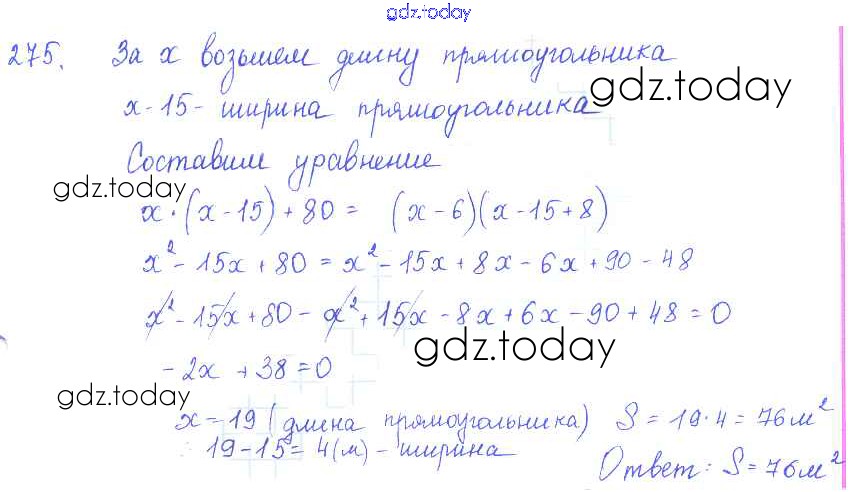 gdz.today
275. За x возьмем длину прямоугольника
gdz.today
x-15 - ширина прямоугольника
Составим уравнение
gdz.today
x·(x-15)+80 = (x-6)(x-15+8)
x²-15x+80 = x²-15x+8x-6x+90-48
x²-15x+80-x²+15x-8x+6x-90+48=0
gdz.today
-2x+38=0
gdz.today
x=19 (длина прямоугольника) S=19·4=76м²
19-15=4(м) - ширина
Ответ: S=76м²